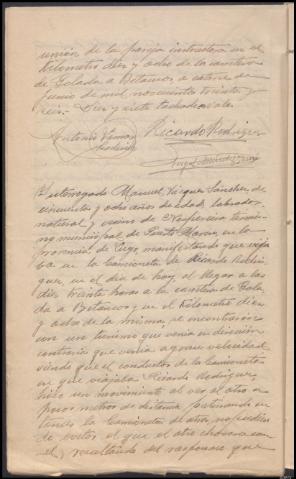 unión de la pareja instructora en el
kilometro diez y ocho de la carretera
de Golada a Betanzos a catorce de
Junio de mil novecientos treinta y
seis. Diez y siete tachado vale.
Antonio Ricardo Rodriguez
Interrogado Manuel Vazquez Sanchez, de
cincuenta y ocho años de edad, labrador,
natural y vecino de termi-
no municipal de Puerto Marin, en la
provincia de Lugo, manifestando que viaja-
ba en la camioneta de Ricardo Rodri-
guez, en el dia de hoy, al llegar a las
diez treinta horas a la carretera de Gola-
da a Betanzos y en el kilometro diez
y ocho de la misma, se encontraron
con un turismo que venia en dirección
contraria que venia a gran velocidad
viendo que el conductor de la camioneta
en que viajaba Ricardo Rodriguez
hizo un movimiento al ver el otro a
pocos metros de distancia
la camioneta del otro, no pudien-
do evitar el que el otro chocara con
el, resultando del que